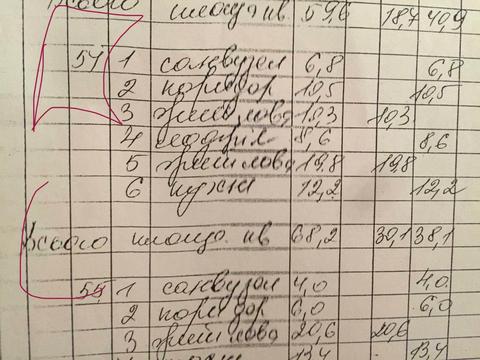 Всего площ. кв. 59,6 18,7 40,9
54 1 санузел 6,8 6,8
2 коридор 10,5 10,5
3 жилая 10,3 10,3
4 8,6 8,6
5 жилая 19,8 19,8
6 кухня 12,2 12,2
Всего площ. кв 68,2 30,1 38,1
55 1 санузел 4,0 4,0
2 коридор 6,0 6,0
3 жилая 20,6 20,6
13,4 13,4